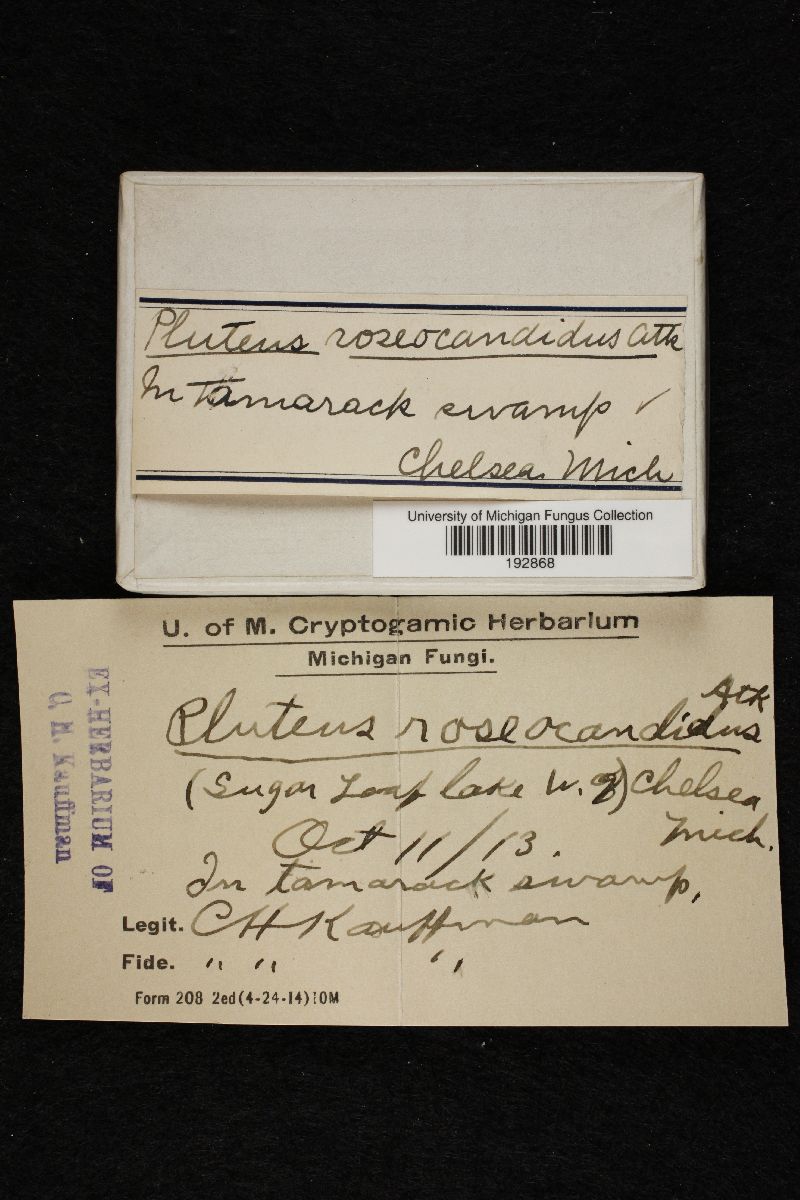 Pluteus roseocandidus Atk
In Tamarack swamp ✓
Chelsea. Mich
University of Michigan Fungus Collection
192868
U. of M. Cryptogamic Herbarium
Michigan Fungi.
Atk
Pluteus roseocandidus
(Sugar Loaf lake W. of) Chelsea
Mich.
Oct 11/13.
In tamarack swamp.
Legit. CHKauffman
Fide. " " "
Form 208 2ed(4-24-14)10M
EX-HERBARIUM OF
C. H. Kauffman